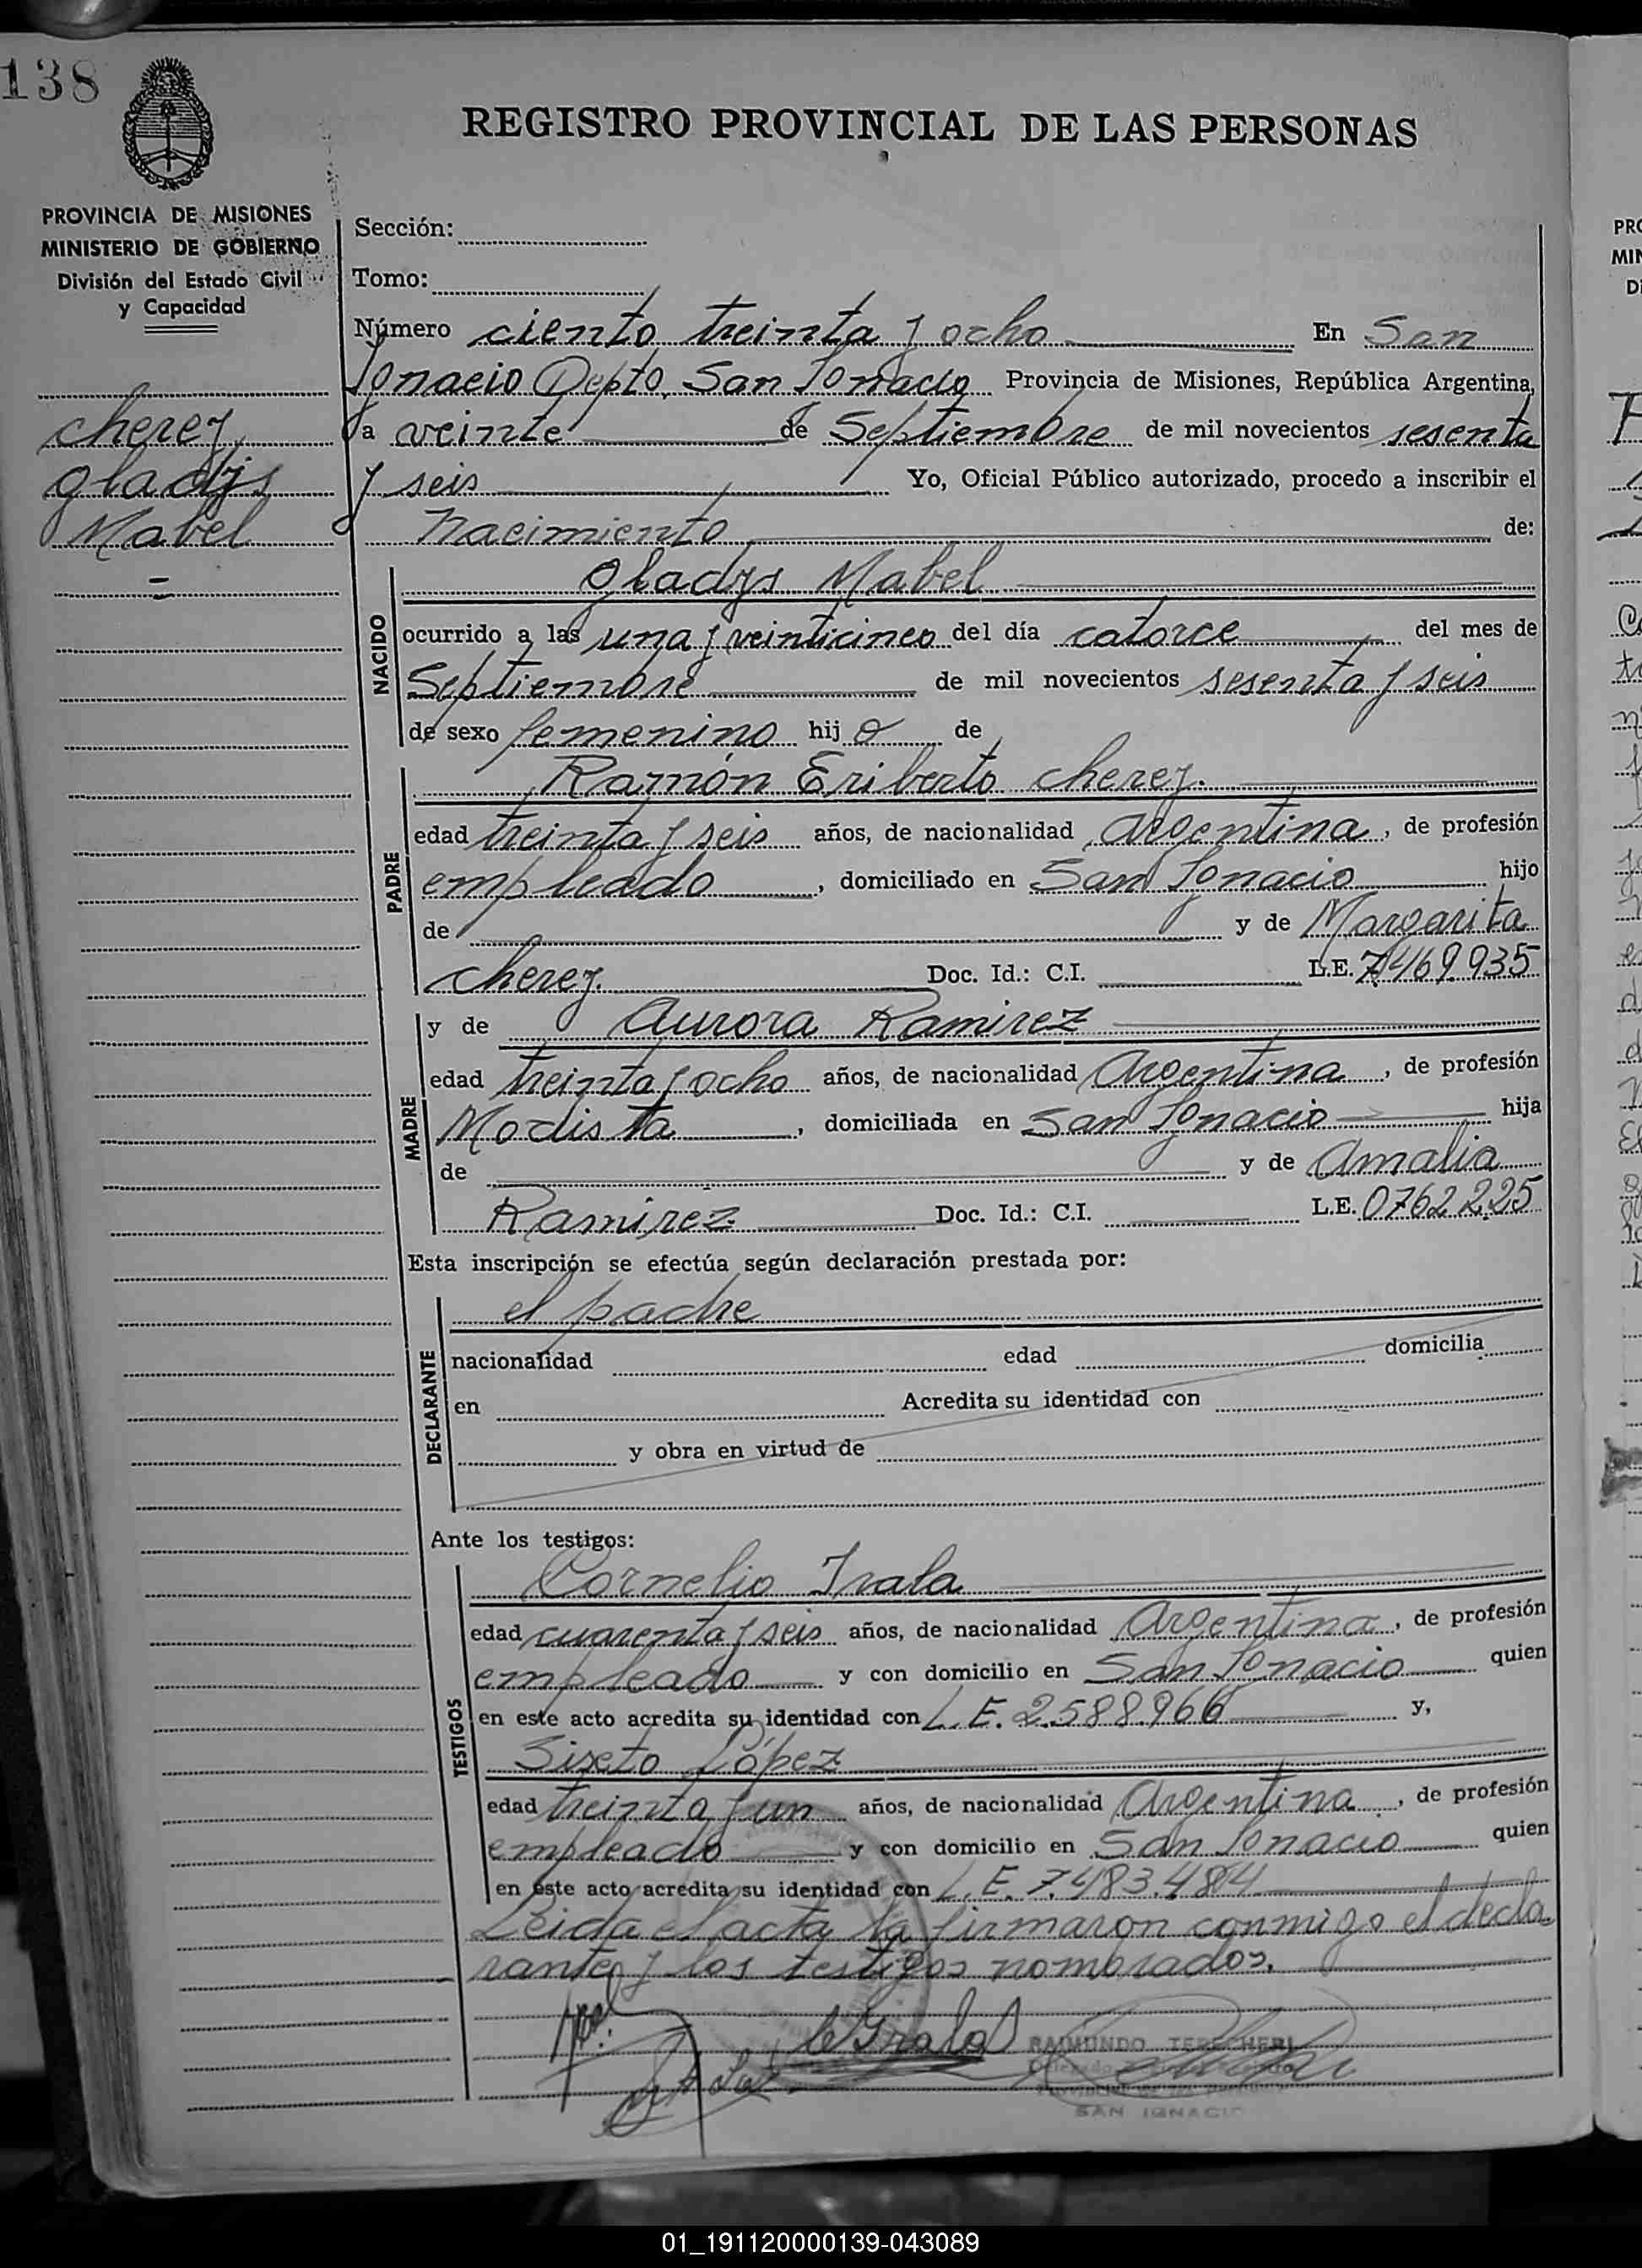 138
REGISTRO PROVINCIAL DE LAS PERSONAS
PROVINCIA DE MISIONES
MINISTERIO DE GOBIERNO
División del Estado Civil
y Capacidad
cherez
gladys
Mabel
Sección:
Tomo:
Número ciento treinta y ocho En San
Ignacio Depto. San Ignacio Provincia de Misiones, República Argentina,
a veinte de Septiembre de mil novecientos sesenta
y seis Yo, Oficial Público autorizado, procedo a inscribir el
nacimiento de:
NACIDO
Gladys Mabel
ocurrido a las una y veinticinco del día catorce del mes de
Septiembre de mil novecientos sesenta y seis
de sexo femenino hij a de
PADRE
Ramón Eriberto cherez.
edad treinta y seis años, de nacionalidad Argentina, de profesión
empleado, domiciliado en San Ignacio hijo
de y de Margarita
cherez. Doc. Id.: C.I. L.E. 7.469.935
MADRE
y de Aurora Ramirez
edad treinta y ocho años, de nacionalidad Argentina, de profesión
Modista, domiciliada en San Ignacio hija
de y de Amalia
Ramirez Doc. Id.: C.I. L.E. 0762225
Esta inscripción se efectúa según declaración prestada por:
DECLARANTE
el padre
nacionalidad edad domicilia
en Acredita su identidad con
y obra en virtud de
Ante los testigos:
TESTIGOS
Cornelio Irala
edad cuarenta y seis años, de nacionalidad Argentina, de profesión
empleado y con domicilio en San Ignacio quien
en este acto acredita su identidad con L.E. 2.588.966 y,
Sixto López
edad treinta y un años, de nacionalidad Argentina, de profesión
empleado y con domicilio en San Ignacio quien
en este acto acredita su identidad con L.E. 7.483.484
Leida el acta la firmaron conmigo el decla
rante y los testigos nombrados.
C Irala
RAIMUNDO
SAN IGNACIO
PRO
MIN
01_191120000139-043089